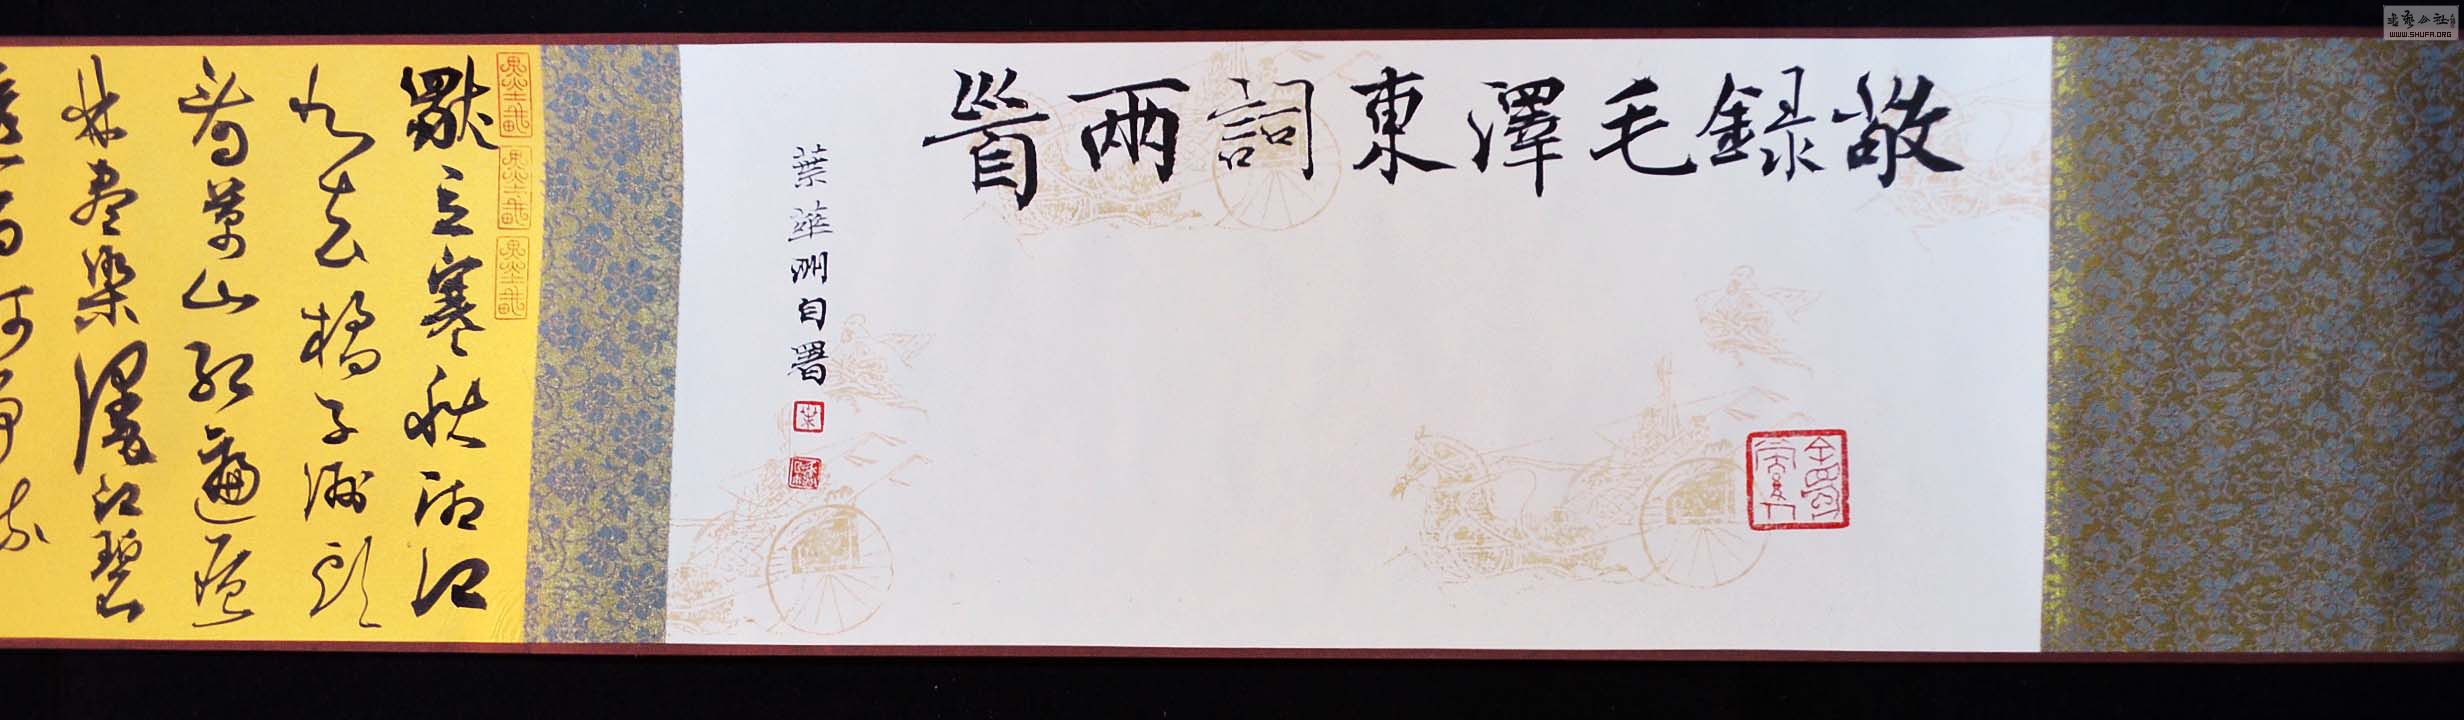 敬録毛澤東詞兩首
葉華州自署
獨立寒秋湘江
北去橘子洲頭
看萬山紅遍層
林盡染漫江碧
百舸争流
書藝公社
WWW.SHUFA.ORG